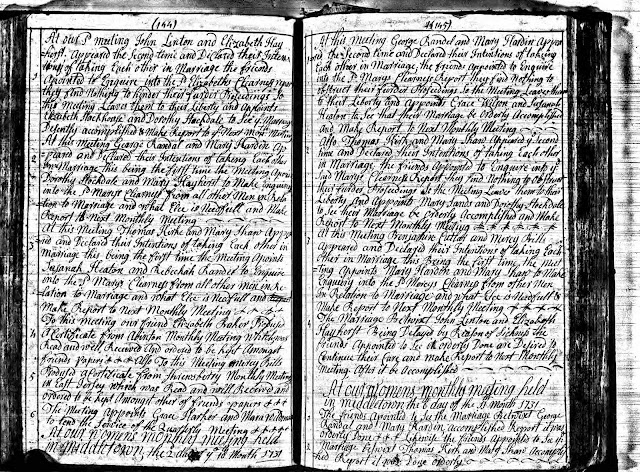 (144)
At our Sd meeting John Linton and Elizabeth Hay
horst. Appeared the Second time and Declared their Inten=
tions of taking Each other in Marriage the friends
Apointed to Enquire into the Sd Elizabeths Clearness report
they find Nothing to hinder their further Proceedings So
this meeting Leaves them to their Liberty and Appoints
Elizabeth and Dorothy Stockdale to See ye Marriage
Desently accomplished & Make Report to ye Next Mont Meeting
2 At this Meeting George Randal and Mary Hardin Ap=
peard and Declared their Intentions of taking Each other
In Marriage this being the first time the Meeting Apoint
Dorothy Stockdale and Mary Hayhorst to Make Enquiry
into the Sd Marys Clearness from all other Men in Rela
tion to Marriage and what Else is Needfull and Make
Report to Next Monthly Meeting
3 At this Meeting Thomas Kirk and Mary Shaw Appear
and Declared their Intentions of taking Each other in
Marriage this being the first time the Meeting Apoint
Susanah Heaton and Rebeckah Randel to Enquire
into the Sd Marys Clearness from all other men in Re
lation to Marriage and what Else is Needfull and
Make Report to Next Monthly Meeting
4 To this Meeting our friend Elizabeth Baker Produst
a Certificate from Abinton Monthly Meeting Which was
Read and well Received and ordered to be kept Amongst
friends papers Also To this Meeting Mercy Bills
5 Produst a Certificate from Shrewsberry Monthly Meeting
in East Jersey which was Read and well Received and
ordered to be kept Amongst other of friends papers
6 The Meeting Appoints Grace Harker and
to tend the Service of the Quarterly Meeting
At our Womens monthly meeting held
in Middletown the 2 day of ye Month 1731
(145)
At this Meeting George Randel and Mary Hardin Appea
red the Second time and Declared their Intentions of taking
Each other in Marriage, the friends Appointed to Enquire
into the Sd Marys Clearness Report they find Nothing to
obstruct their further Proseedings So the Meeting Leaves them
to their Liberty and Appoints Grace Wilson and Susanah
Heaton to See that their Marriage be orderly Accomplished
and Make Report to Next Monthly Meeting
Also Thomas Kirk and Mary Shaw Appeared ye Second
time and Declared their Intentions of taking Each other
in Marriage, the friends Appointed to Enquire into ye
Sd Marys Clearness Report they find Nothing to obstruct
their further Proseedings So the Meeting Leaves them to their
Liberty and Appoints Mary Sands and Dorothy Stockdale
to See their Marriage be orderly Accomplished and Make
Report to Next Monthly Meeting
At this Meeting Benjamine Cutler and Mercy Bills
Appeared and Declared their Intentions of taking Each
other in Marriage this Being the first time, the Mee
ting Appoints Mary Hardin and Mary Shaw to Make
Enquiry into the Sd Mercys Clearness from other Men
in Relation to Marriage and what Else is Needfull &
Make Report to Next Monthly Meeting
4 The Marriage Betwixt John Linton and Elizabeth
Hayhorst Being Delayed by Reason of Sickness the
friends Appointed to See it orderly Done are Desired to
Continue their Care and make Report to Next Monthly
Meeting After it be Accomplished
At our Womens monthly meeting held
in Middletown the 6 day of Month 1731
The friends Appointed to See the Marriage Betwixt George
Randal and Mary Hardin accomplished Report it was
orderly Done Likewise the friends Appointed to See ye
Marriage Betwixt Thomas Kirk and Mary Shaw Accompli
shed Report it was Done orderly